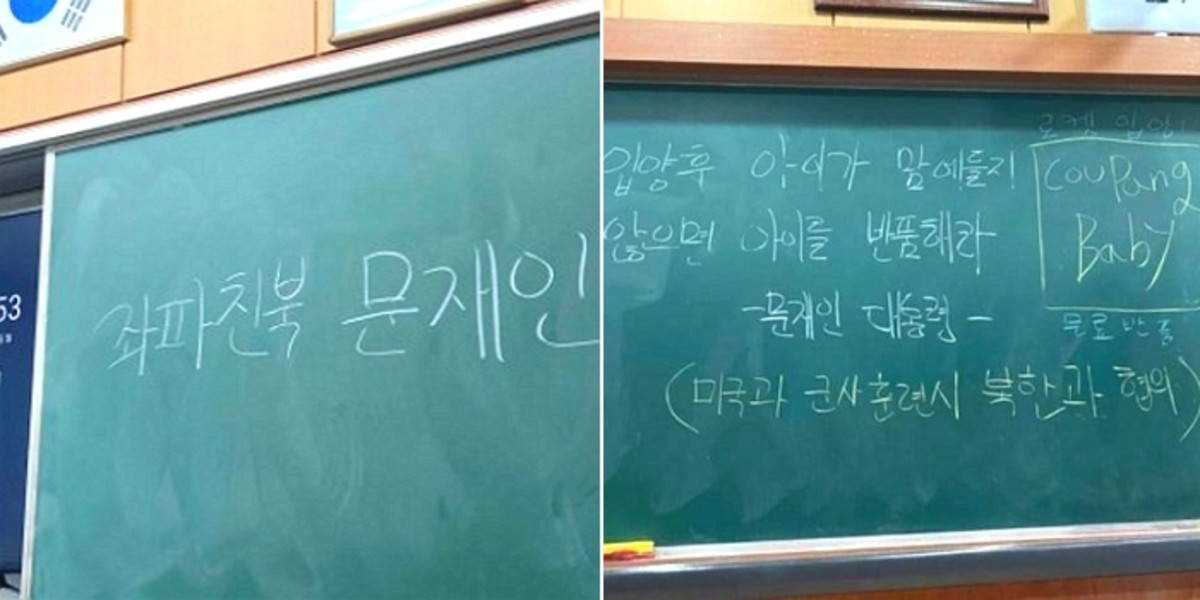 53
좌파친북 문재인
로켓 입양
입양후 아이가 맘에들지
않으면 아이를 반품해라
-문재인 대통령-
(미국과 군사훈련시 북한과 협의)
coupang
Baby
무료반품